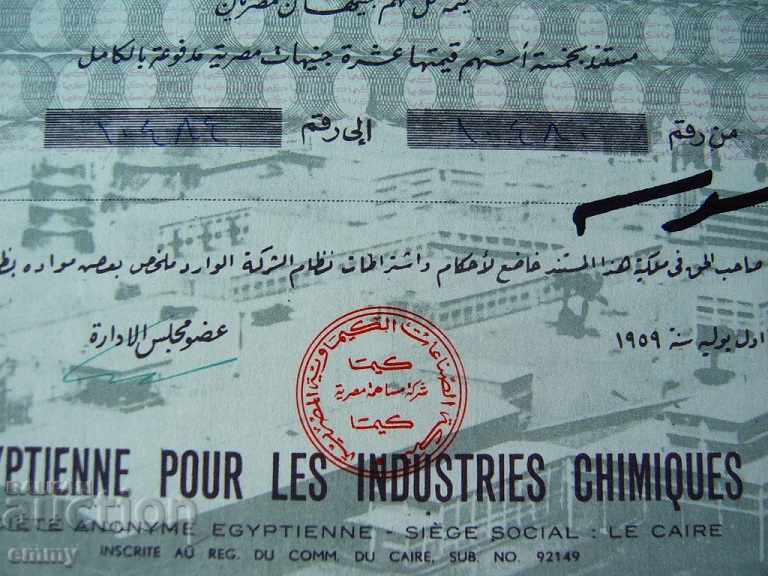 قيمة كل سهم جنيهان مصريان
مستند بخمسة أسهم قيمتها عشرة جنيهات مصرية مدفوعة بالكامل
من رقم ١٠٤٨٠ إلى رقم ١٠٤٨٤
صاحب الحق فى ملكية هذا المستند خاضع لأحكام واشتراطات نظام الشركة الوارد ملخص بعض مواده
اول يوليه سنة ١٩٥٩
عضو مجلس الادارة
شركة الصناعات الكيماوية المصرية
كيما
شركة مساهمة مصرية
كيما
YPTIENNE POUR LES INDUSTRIES CHIMIQUES
IÉTÉ ANONYME EGYPTIENNE - SIÈGE SOCIAL : LE CAIRE
INSCRITE AU REG. DU COMM. DU CAIRE, SUB. NO. 92149
auction
emmy